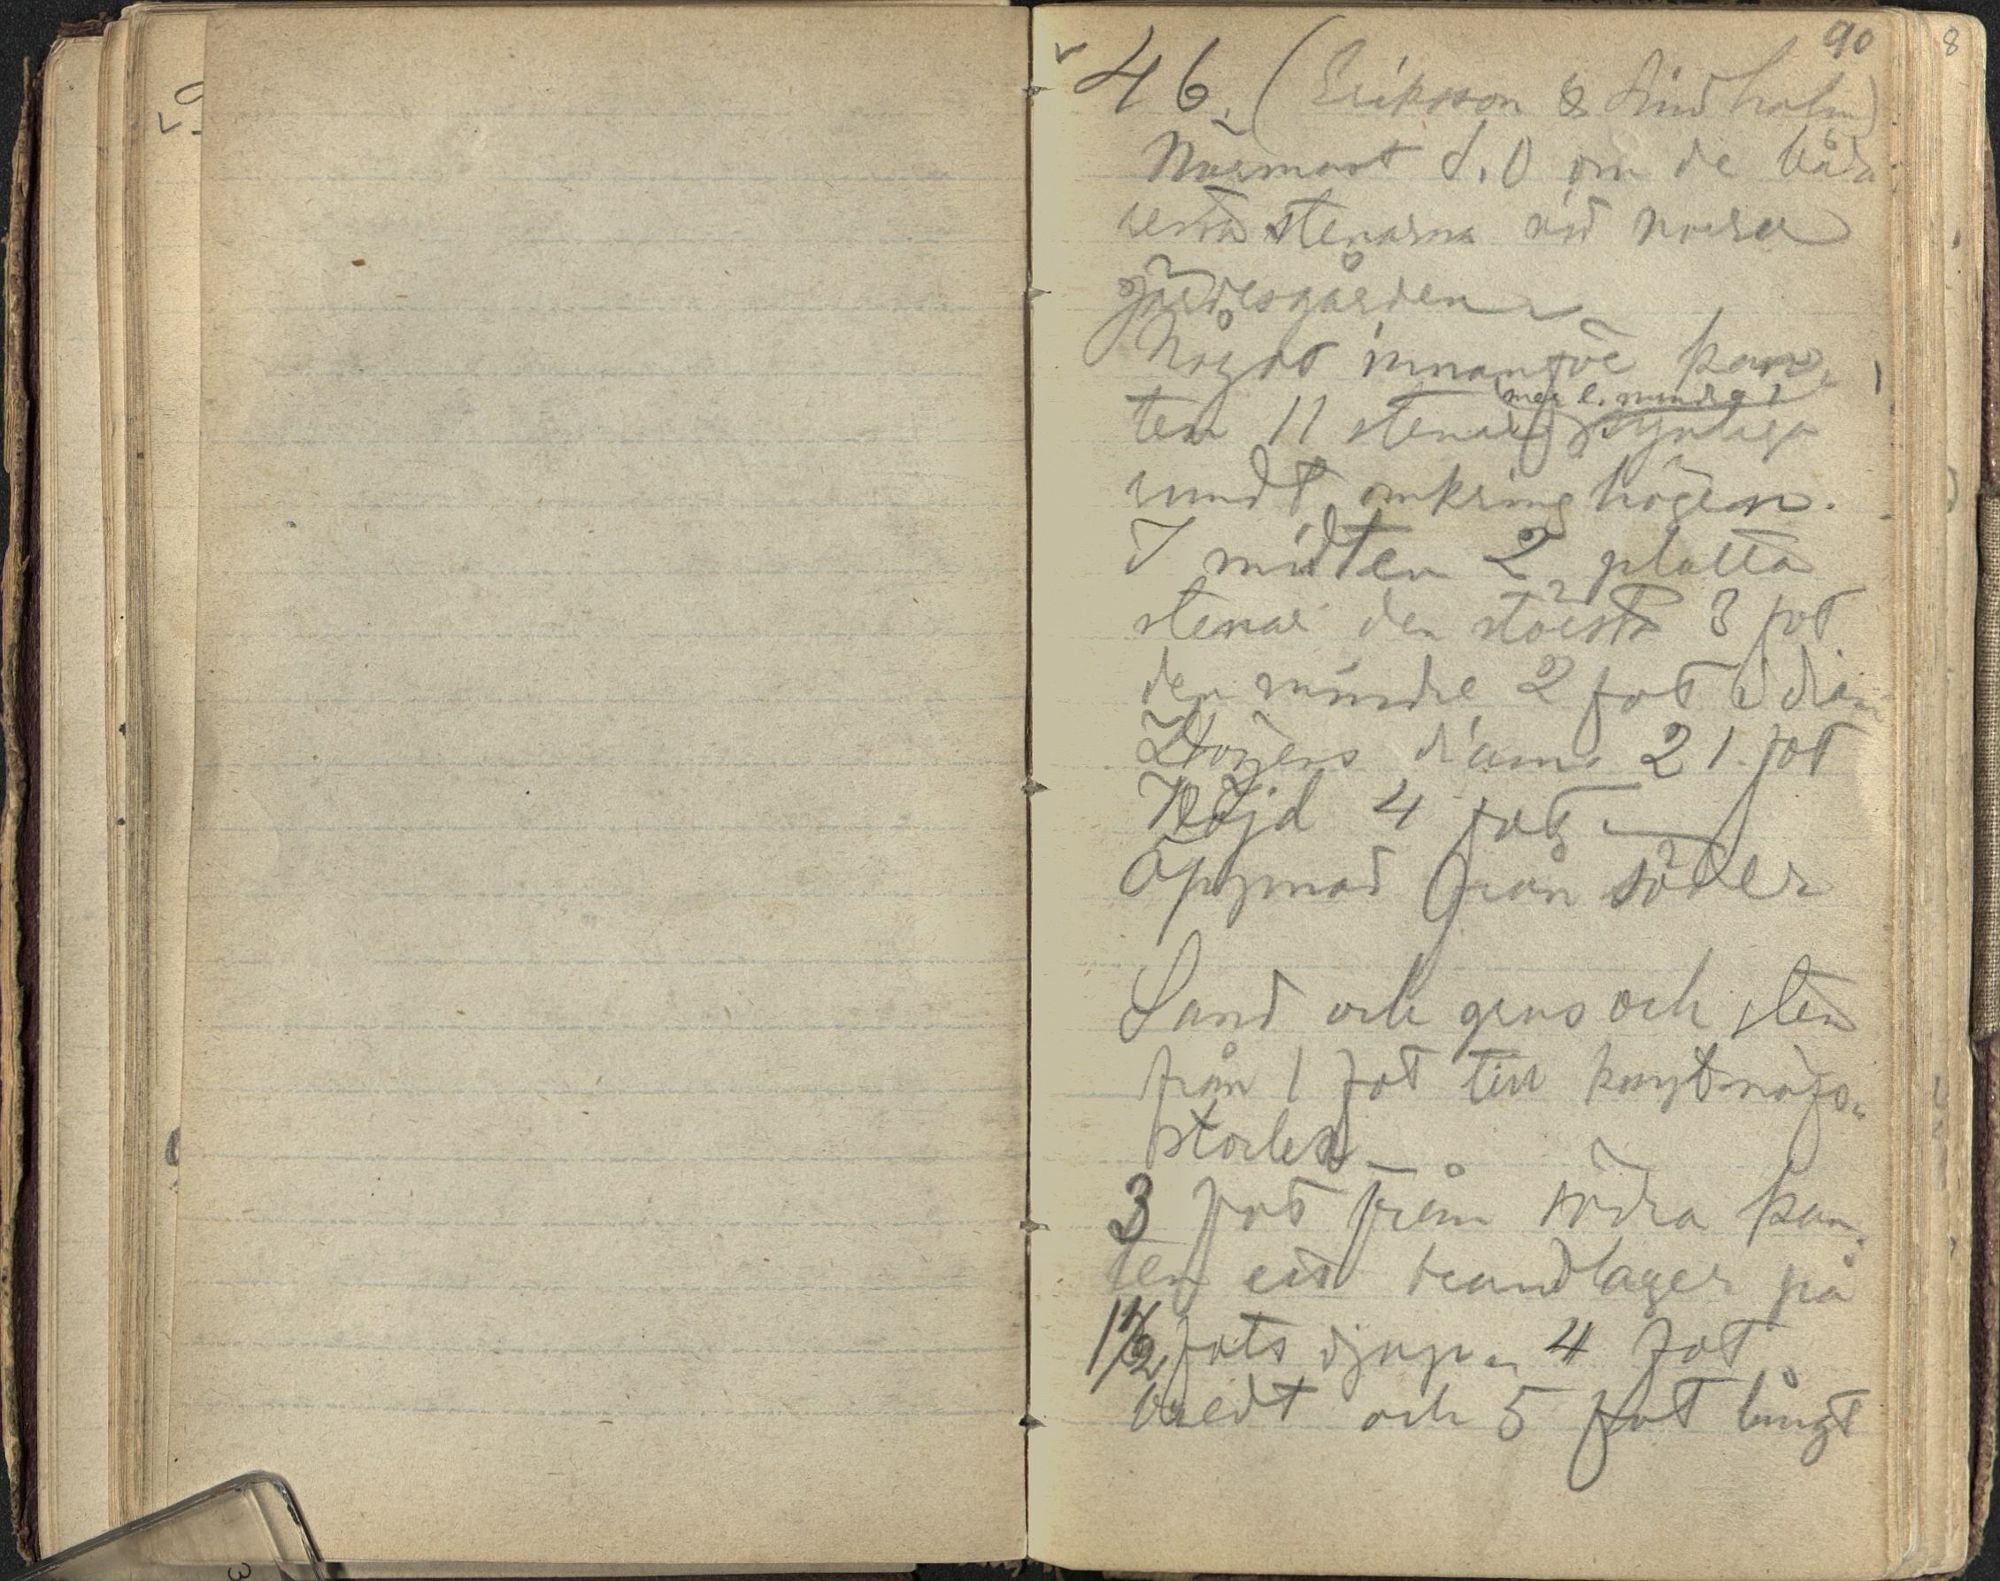 90
46. (Eriksson & Lindholm)
Närmast S.O om de båda
resta stenarna vid norra
gärdesgården
Något innanför kan-
mer l. mindre
ten 11 stenar synliga
rundt omkring högen.
I midten 2 platta
stenar den största 3 fot
den mindre 2 fot i diam
Högens diam. 21 fot
Höjd 4 fot
Öppnad från söder
Sand och grus och sten
från 1 fot till knytnäfs-
storlek
3 fot från södra kan-
ten ett brandlager på
1 1/2 fots djup 4 fot
bredt och 5 fot långt
8